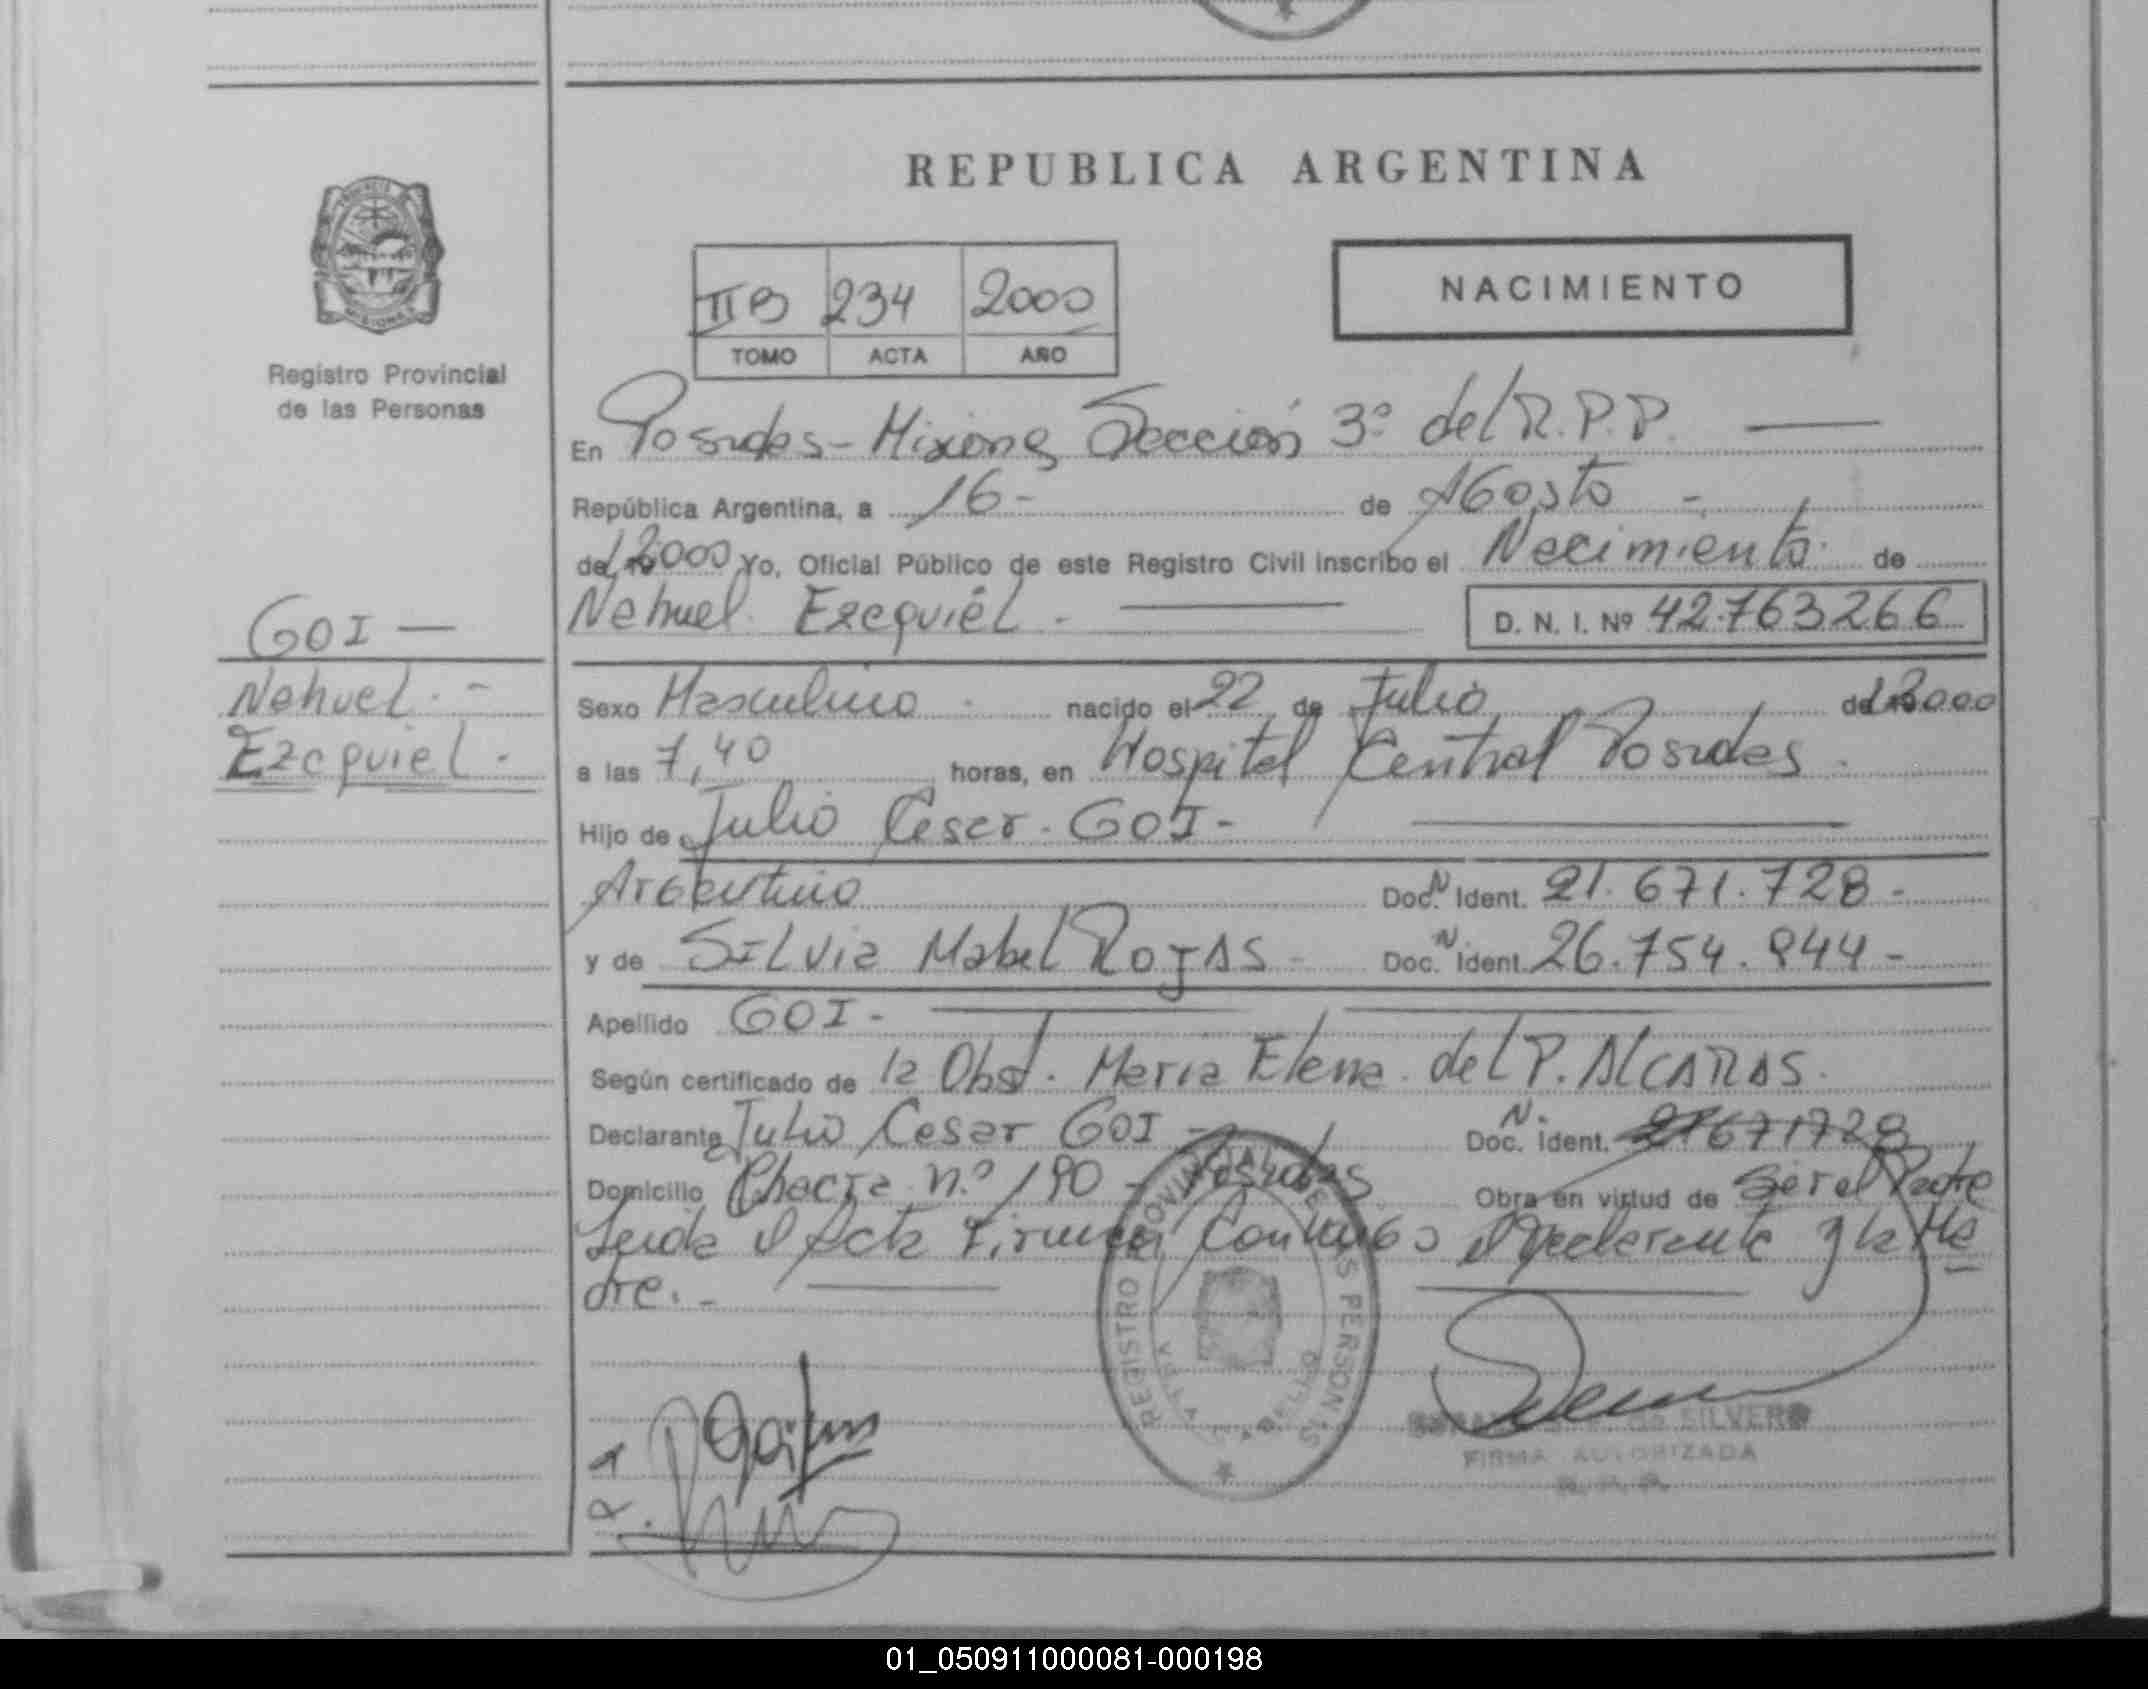 REPUBLICA ARGENTINA
NACIMIENTO
IIB 234 2000
TOMO ACTA AÑO
Registro Provincial
de las Personas
En Posadas - Misiones Sección 3º del R.P.P.
República Argentina, a 16 - de AGosto -
de 2000 Yo, Oficial Público de este Registro Civil inscribo el Nacimiento. de
Nahuel Ezequiel. D. N. I. Nº 42.763.266
GOI —
Nahuel. -
Ezequiel.
Sexo Masculino nacido el 22 de Julio de 2000
a las 7,40 horas, en Hospital Central Posadas.
Hijo de Julio Cesar GOI -
Argentino Doc. N Ident. 21.671.728 -
y de SILVia Mabel ROJAS - Doc. N Ident. 26.754.944 -
Apellido GOI -
Según certificado de la Obst. Maria Elena del P. ALCARAS.
Declarante Julio Cesar GOI - Doc. N. Ident. 21671728
Domicilio Chacra n.º 190 - Posadas Obra en virtud de Ser el Padre
Leida el Acta Firman Conmigo el Declarante y la Ma
dre. -
REGISTRO PROVINCIAL DE LAS PERSONAS
SILVERO
FIRMA AUTORIZADA
R.P.P.
01_050911000081-000198